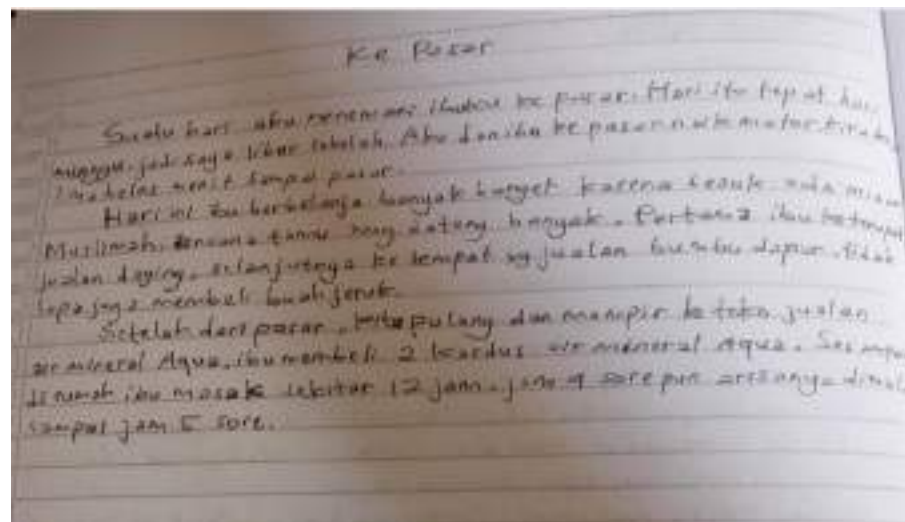 Ke Pasar
Suatu hari aku menemani ibuku ke pasar. Hari itu tepat hari
minggu, jadi saya libur sekolah. Aku dan ibu ke pasar naik motor.
belas menit sampai pasar.
Hari ini ibu berbelanja banyak banget karena besok ada
Muslimah, rencana tamu yang datang banyak. Pertama ibu ketempat
jualan daging, selanjutnya ke tempat yg jualan bumbu dapur. tidak
lupa juga membeli buah jeruk.
Setelah dari pasar, kita pulang dan mampir ke toko jualan
air mineral Aqua, ibu membeli 2 kardus air mineral Aqua. Sesampai
dirumah ibu masak sekitar 12 jam. jam 4 sore pun arisanya dimulai
sampai jam 5 sore.